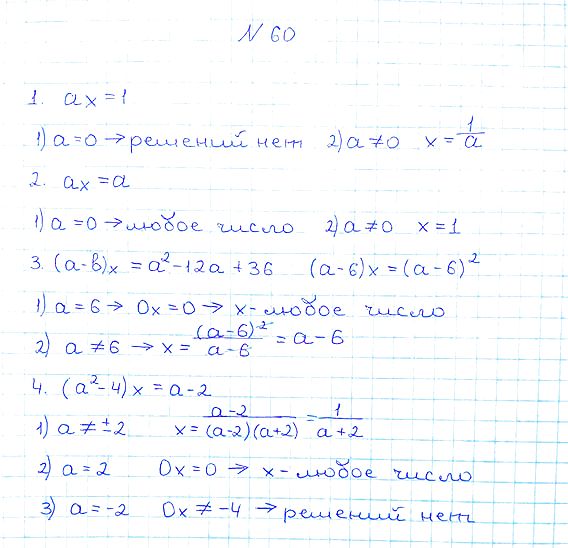 N 60
1. ax = 1
1) a = 0 → решений нет 2) a ≠ 0 x = 1/a
2. ax = a
1) a = 0 → любое число 2) a ≠ 0 x = 1
3. (a-в)x = a² - 12a + 36 (a-6)x = (a-6)²
1) a = 6 → 0x = 0 → x - любое число
2) a ≠ 6 → x = (a-6)²/a-6 = a-6
4. (a²-4)x = a-2
1) a ≠ ±2 x = a-2/(a-2)(a+2) = 1/a+2
2) a = 2 0x = 0 → x - любое число
3) a = -2 0x ≠ -4 → решений нет